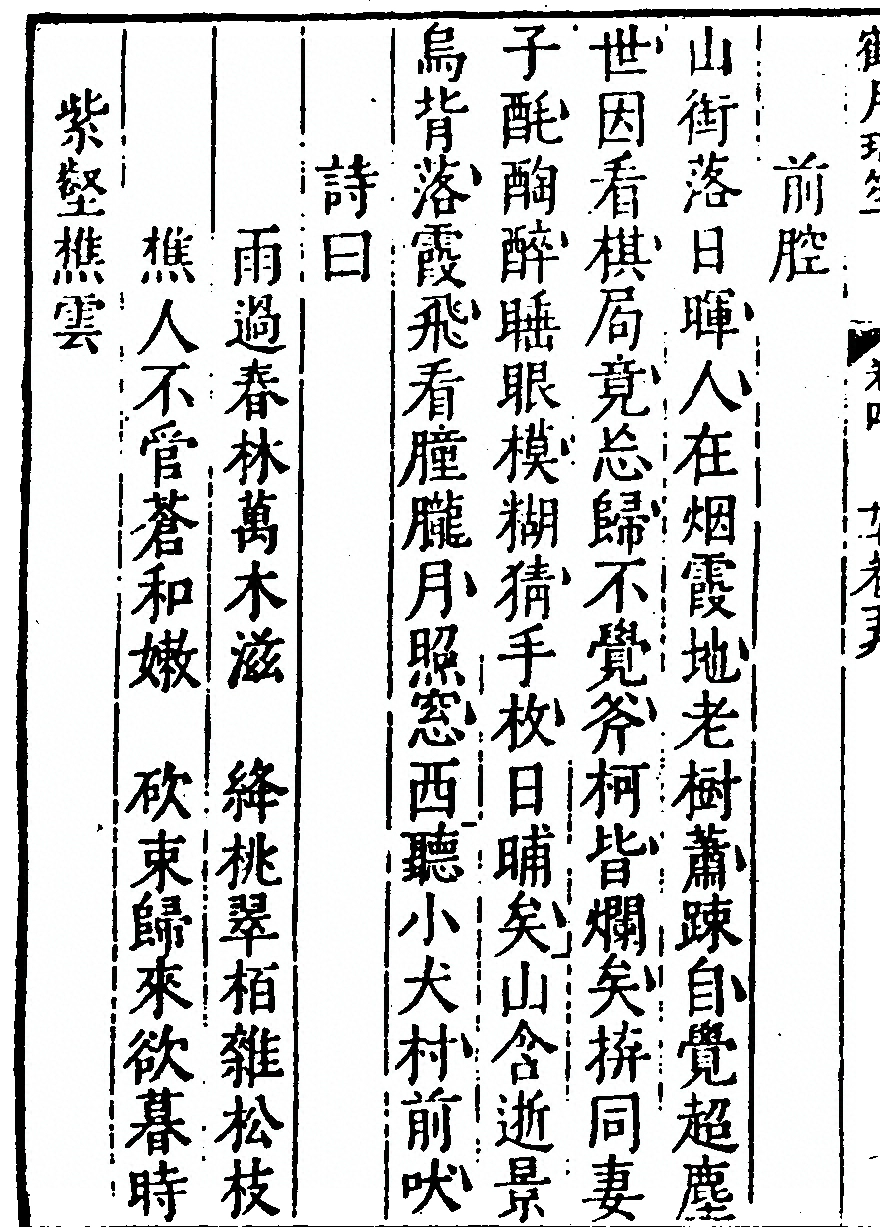 前腔
山銜落日暉人在烟霞地老樹蕭踈自覺超塵
世因看棋局竟忘歸不覺斧柯皆爛矣拚同妻
子酕醄醉睡眼模糊猜手枚日晡矣山含逝景
烏背落霞飛看朣朧月照窓西聽小犬村前吠
詩曰
雨過春林萬木滋　絳桃翠栢雜松枝
樵人不管蒼和嫩　砍束歸來欲暮時
紫壑樵雲